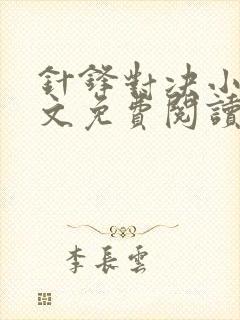 針鋒對决小
文免費閱讀
李長雲